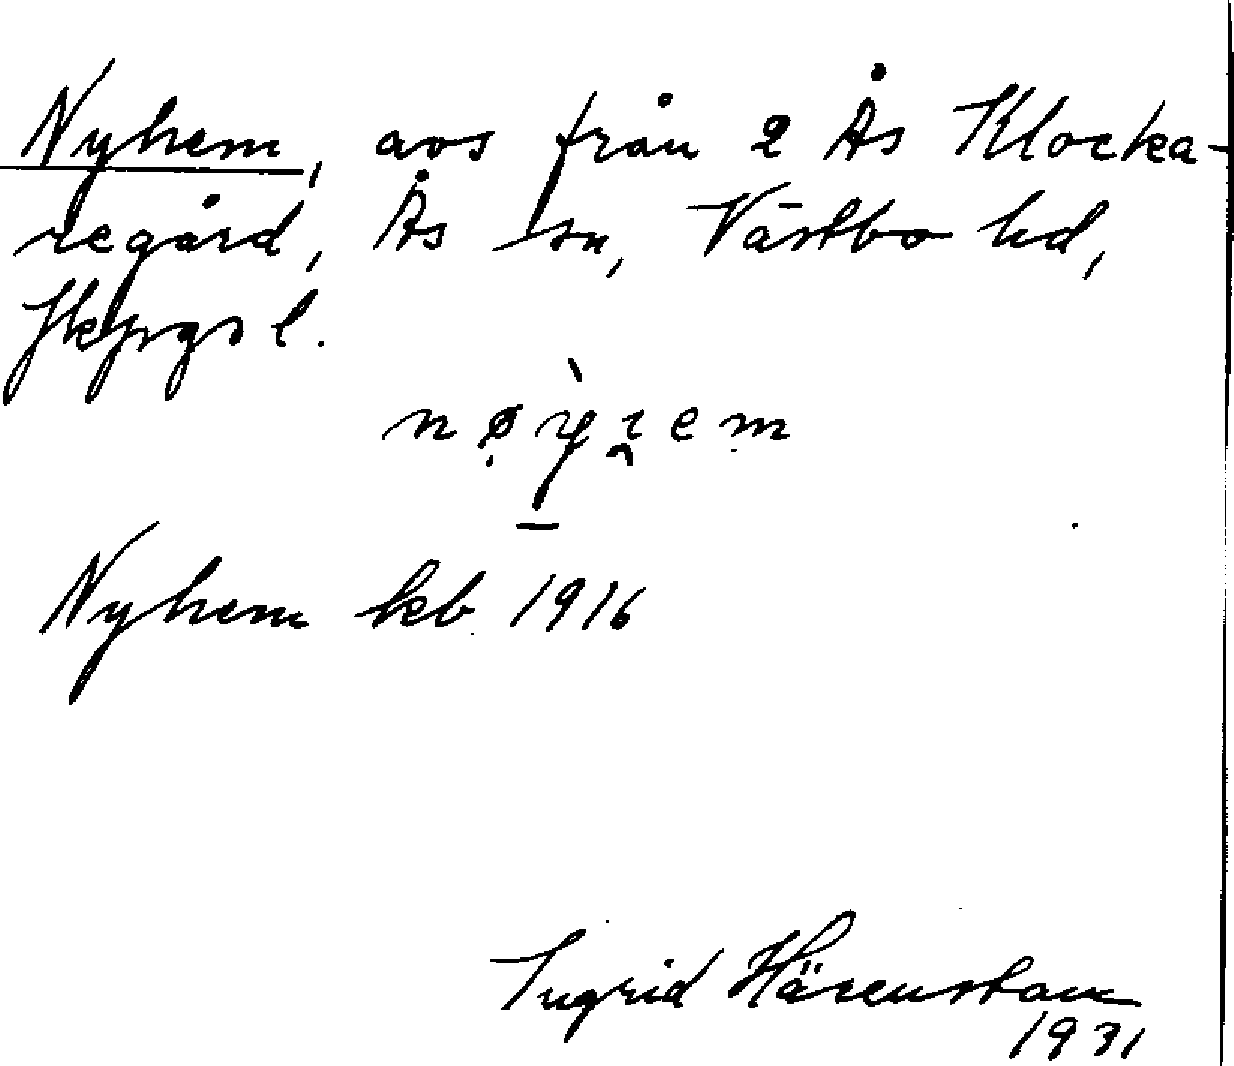 Nyhem, avs från 2 Ås Klocka-
regård, Ås sn, Västbo hd,
Jkpgs l.
Nyhem kb 1916
Ingrid Härenstam
1931